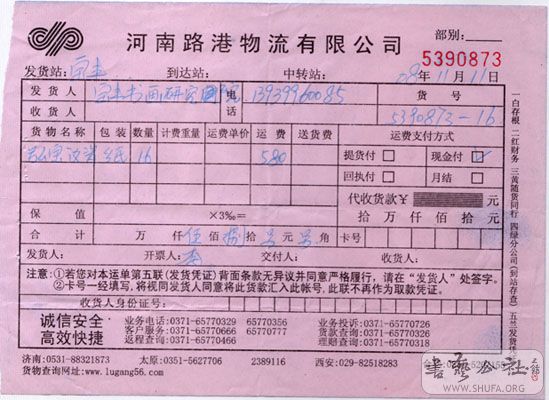 河南路港物流有限公司
部别:
5390873
发货站: 宝丰 到达站: 中转站: 08年11月11日
发货人 宝丰书画研究 电话 13939960085 货号
收货人 5390873-16
货物名称 包装 数量 计费重量 运费单价 运费 送货费 运费支付方式
纸 16 580 提货付 现金付
回执付 月结
代收货款¥ 元
拾 万 仟 佰 拾 元
保值 ×3‰=
合计 万 仟 伍 佰 捌 拾 元 角 卡号
发货人: 开票人: 交付人: 收货人:
注意:①若您对本运单第五联(发货凭证)背面条款无异议并同意严格履行,请在“发货人”处签字。
②卡号一经填写,将视同发货人同意将此货款汇入此帐号,此联不再作为取款凭证。
收货人身份证号:
诚信安全
高效快捷
业务电话:0371-65770329 65770356
客户服务:0371-65770666 65770777
返程业务:0371-65770466
业务投诉:0371-65770726
货款查询:0371-65770326
理赔查询:0371-65770318
济南:0531-88321873 太原:0351-5627706 2389116 西安:029-82518283
货物查询网址:www.lugang56.com
一白存根 二红财务 三黄随货同行 四绿分公司(到站存查) 五兰发货凭
書藝公社
WWW.SHUFA.ORG